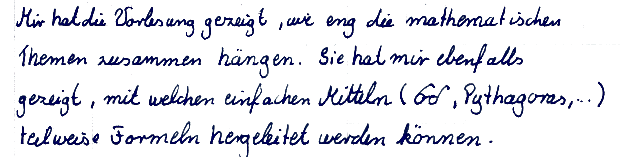 Mir hat die Vorlesung gezeigt, wie eng die mathematischen
Themen zusammen hängen. Sie hat mir ebenfalls
gezeigt, mit welchen einfachen Mitteln (, Pythagoras,...)
teilweise Formeln hergeleitet werden können.